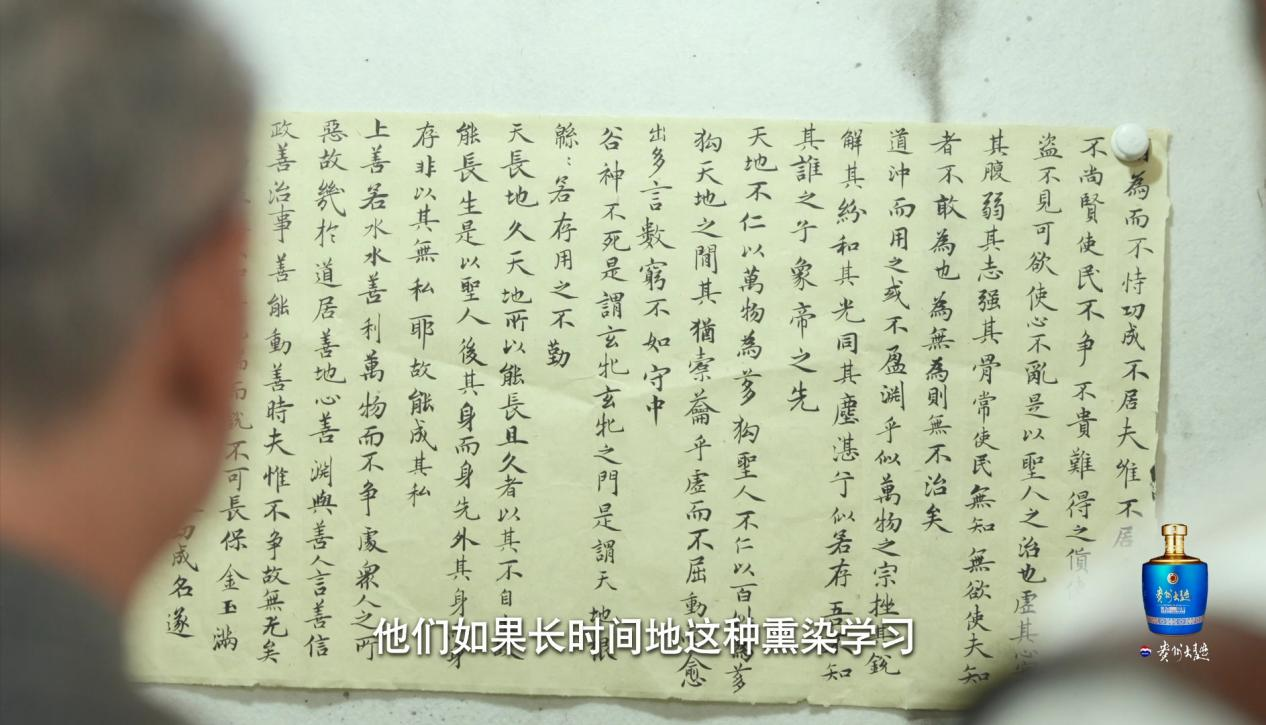 為而不恃功成不居夫惟不居
不尚賢使民不争不貴難得之貨使
盜不見可欲使心不亂是以聖人之治也虛其心
其腹弱其志强其骨常使民無知無欲使夫知
者不敢為也為無為則無不治矣
道沖而用之或不盈淵乎似萬物之宗挫其銳
解其紛和其光同其塵湛兮似若存吾知
其誰之子象帝之先
天地不仁以萬物為芻狗聖人不仁以百為芻
狗天地之間其猶橐籥乎虛而不屈動愈
出多言數窮不如守中
谷神不死是謂玄牝玄牝之門是謂天地根
緜〻若存用之不勤
天長地久天地所以能長且久者以其不自
能長生是以聖人後其身而身先外其身身
存非以其無私耶故能成其私
上善若水水善利萬物而不争處衆人之所
惡故幾於道居善地心善淵與善人言善信
政善治事善能動善時夫惟不争故無尤矣
而銳不可長保金玉滿
功成名遂
他们如果长时间地这种熏染学习
贵州大曲
贵州大曲